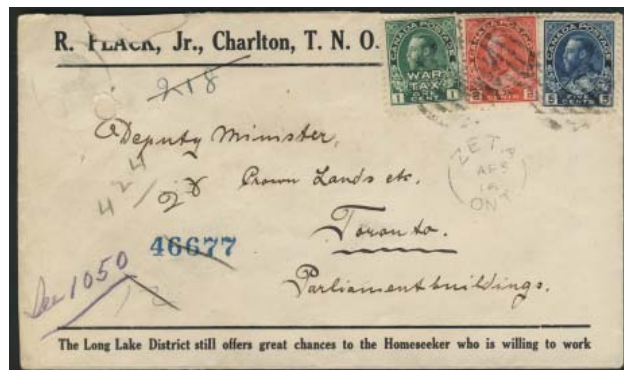 R. FLACK, Jr., Charlton, T. N. O.
CANADA POSTAGE
WAR TAX
1 ONE CENT 1
CANADA POSTAGE
2 CENTS 2
CANADA POSTAGE
5 FIVE CENTS 5
218
Deputy Minister,
Crown Lands etc.
Toronto.
Parliament buildings.
ZETA
AP 5
16
ONT
424
28
46677
See 1050
12
The Long Lake District still offers great chances to the Homeseeker who is willing to work